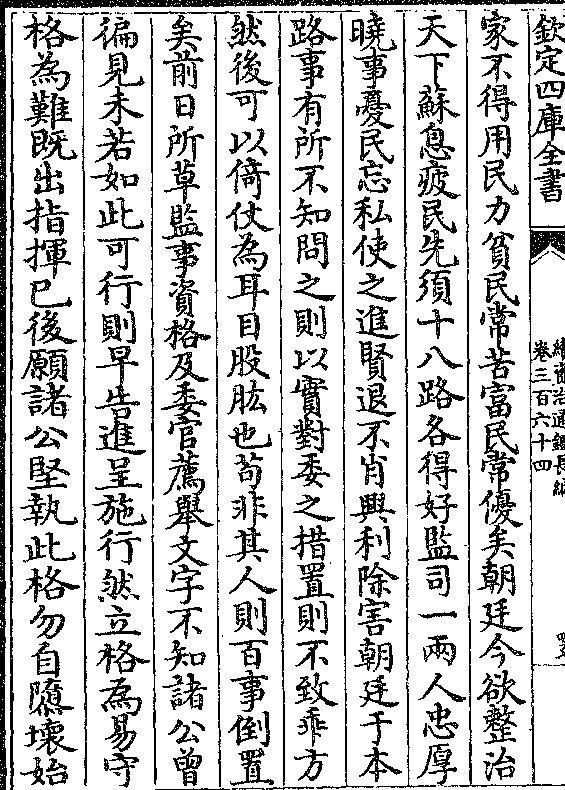 欽定四庫全書
續資治通鑑長編
卷三百六十四
家不得用民力貧民常苦富民常優矣朝廷今欲整治
天下蘇息疲民先須十八路各得好監司一兩人忠厚
曉事憂民忘私使之進賢退不肖興利除害朝廷于本
路事有所不知問之則以實對委之措置則不致乖方
然後可以倚仗為耳目股肱也苟非其人則百事倒置
矣前日所草監事資格及委官薦舉文字不知諸公曾
徧見未若如此可行則早告進呈施行然立格為易守
格為難既出指揮已後願諸公堅執此格勿自隳壞始